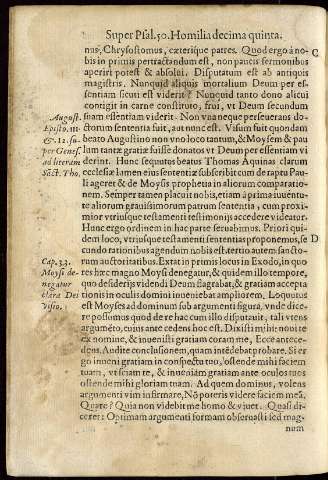 Super Psal. 50. Homilia decima quinta.
nus, Chrysostomus, cæterique patres. Quod ergo à no-
bis in primis pertractandum est, non paucis sermonibus
aperiri potest & absolui. Disputatum est ab antiquis
magistris. Nunquid aliquis mortalium Deum per es-
sentiam sicut est viderit? Nunquid tanto dono alicui
contigit in carne constituto, frui, vt Deum secundum
suam essentiam viderit. Non vna neque perseuerans do-
ctorum sententia fuit, aut nunc est. Visum fuit quondam
beato Augustino non vno loco tantum, & Moysem & pau
lum tantæ gratiæ fuisse donatos vt Deum per essentiam vi
derint. Hunc sequutus beatus Thomas Aquinas clarum
ecclesiæ lamen eius sententiæ subscribit cum de raptu Pau
li ageret & de Moysis prophetia in aliorum comparatio-
nem. Semper tamen placuit nobis, etiam à prima iuuentu
te aliorum grauissimorum patrum sententia, cum proxi
mior vtriusque testamenti testimonijs accedere videatur.
Hunc ergo ordinem in hac parte seruabimus. Priori qui-
dem loco, vtriusque testamenti sententias proponemus, se
cundo rationibus agendum nobis est. tertio autem sancto-
rum auctoritatibus. Extat in primis locus in Exodo, in quo
res hæc magno Moysi denegatur, & quidem illo tempore,
quo desiderijs videndi Deum flagrabat, & gratiam accepta
tionis in oculis domini inueniebat ampliorem. Loquutus
est Moyses ad dominum sub argumenti figura, vnde dice-
re possumus quod de re hac cum illo disputauit, tali vtens
argumēto, cuius ante cedens hoc est. Dixisti mihi: noui te
ex nomine, & inuenisti gratiam coram me, Ecce antece-
dens. Audite conclusionem, quam intēdebat probare. Si er
go inueni gratiam in conspectu tuo, ostende mihi faciem
tuam, vt sciam te, & inueniam gratiam ante oculos tuos
ostende mihi gloriam tuam. Ad quem dominus, volens
argumenti vim infirmare, Nō poteris videre faciem meā,
Quare? Quia non videbit me homo & viuet. Quasi di-
ceret: Optimam argumenti formam obseruasti sed mag-
num
C
D
August.
Episto. 111.
& 12. su-
per Genes.
ad literam
Sāct. Tho.
Cap. 33.
Moysi de-
negatur
clara Dei
visio.